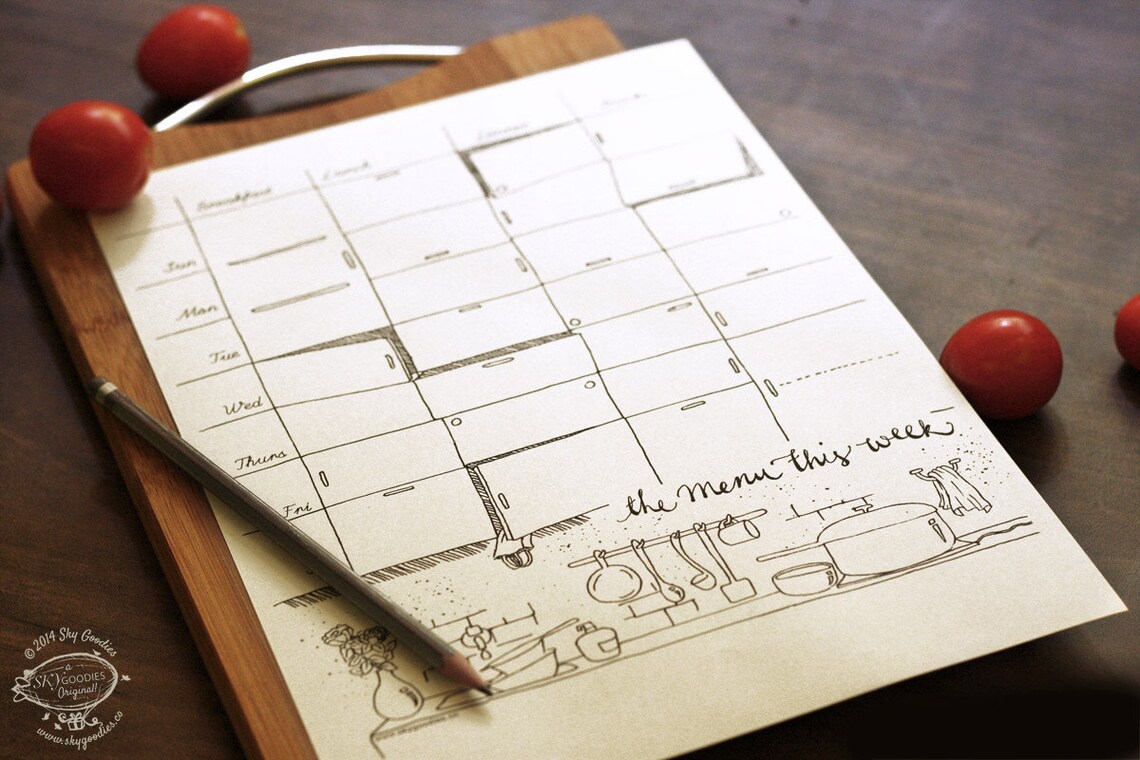 Breakfast Lunch Dinner
Sun
Mon
Tue
Wed
Thurs
Fri
the menu this week
© 2014 Sky Goodies
a
SKYGOODIES
Original!
www.skygoodies.co